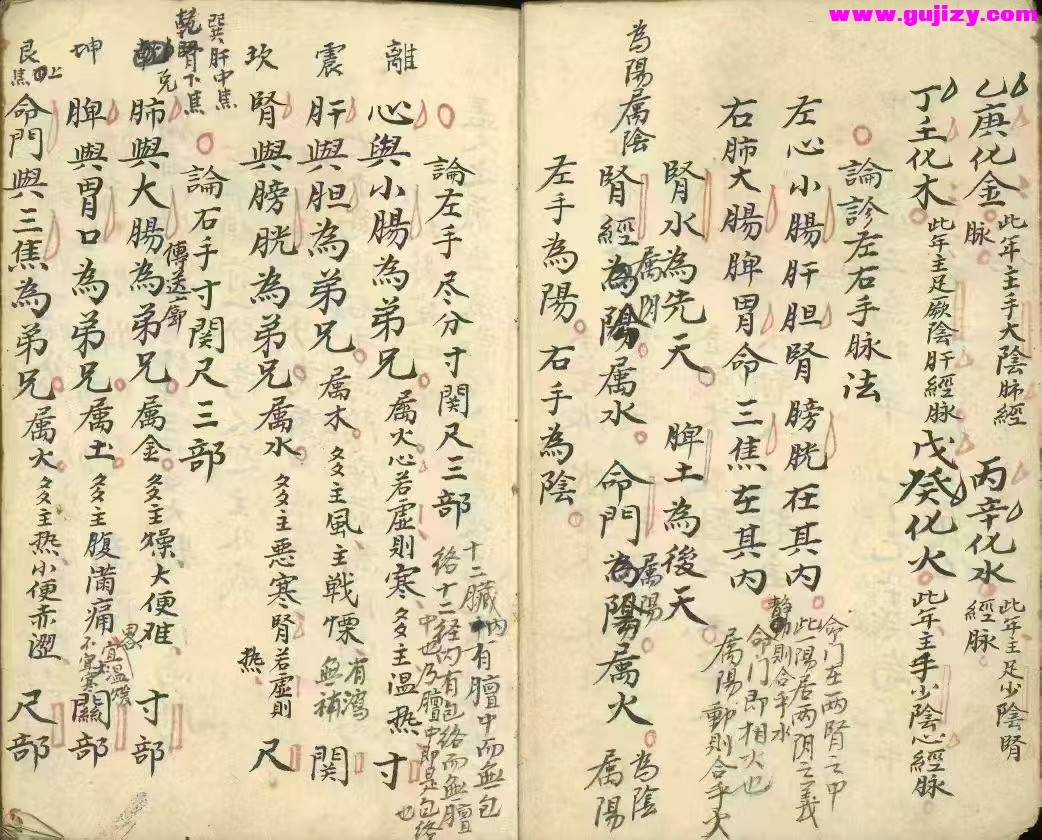 www.gujizy.com
乙庚化金 此年主手大陰肺經脉 丙辛化水 此年主足少陰腎經脉
丁壬化木 此年主足厥陰肝經脉 戊癸化火 此年主手少陰心經脉
論診左右手脉法
左心小腸肝胆腎膀胱在其内 命门在两腎之中
此一陽居两阴之義
静則合手水
右肺大腸脾胃命三焦在其内 命门即相火也
属陽動則合手火
腎水為先天 脾土為後天
腎經為陽属水 命門為陽属火
属阴 属陽
為陽属陰 為陰属陽
左手為陽 右手為陰
論左手尽分寸関尺三部 十二臟内有膻中而無包
絡十二経内有包絡而無膻
中也乃膻中即是包絡
也
離 心與小腸為弟兄 属火心若虚則寒 多主温热 寸
震 肝與胆為弟兄 属木 多主風主戰慄 有瀉無補 関
坎 腎與膀胱為弟兄属水 多主悪寒腎若虚則热 尺
巽肝中焦
乾腎下焦
論右手寸関尺三部
兑 肺與大腸為弟兄属金 多主燥大便难 寸部
傳送
坤 脾與胃口為弟兄属土 多主腹滿痛 宜温煖不宜寒 關部
艮 上焦 命門與三焦為弟兄属火 多主热小便赤澀 尺部